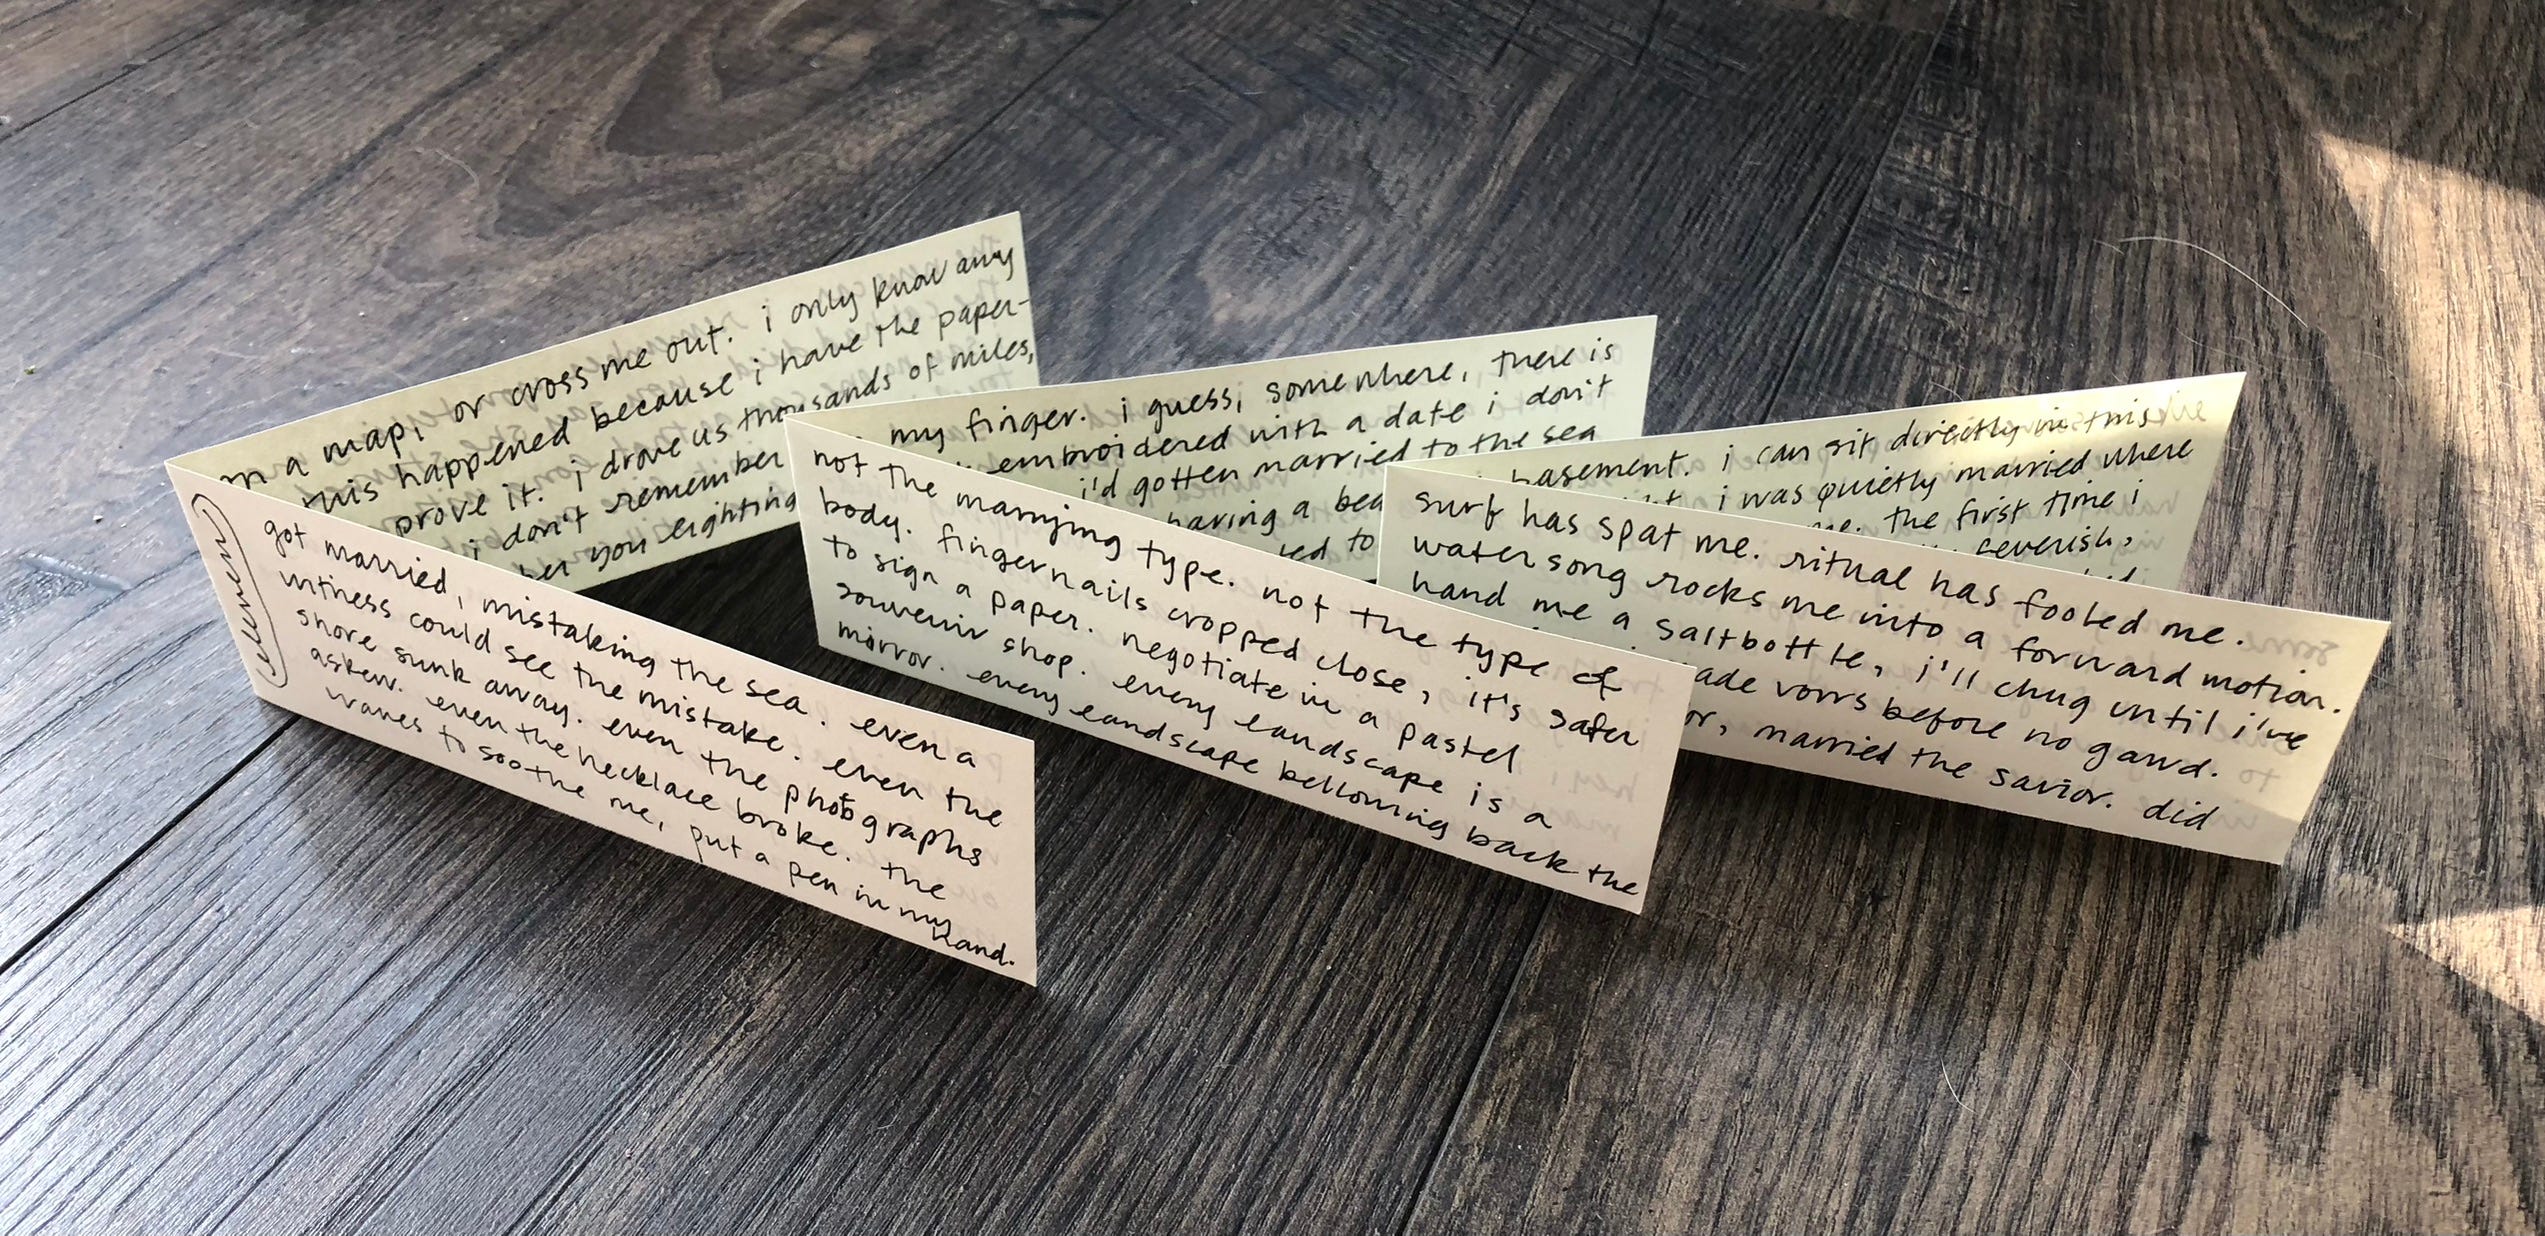 element
got married, mistaking the sea. even a
witness could see the mistake. even the
shore sunk away. even the photographs
askew. even the necklace broke. the
waves to soothe me, put a pen in my
hand.
on a map, or cross me out. i only know any
this happened because i have the paper-
prove it. i drove us thousands of miles,
i don't remember
you eighting
not the marrying type. not the type of
body. fingernails cropped close, it's safer
to sign a paper. negotiate in a pastel
souvenir shop. every landscape is a
mirror. every landscape bellowing back the
my finger. i guess, somewhere, there is
embroidered with a date i don't
i'd gotten married to the sea
having a
to
surf has spat me. ritual has fooled me.
water song rocks me into a forward motion.
hand me a saltbottle, i'll chug until i've
vows before no gawd.
married the savior. did
basement. i can sit directly in this
i was quietly married where
the first time i
feverish,